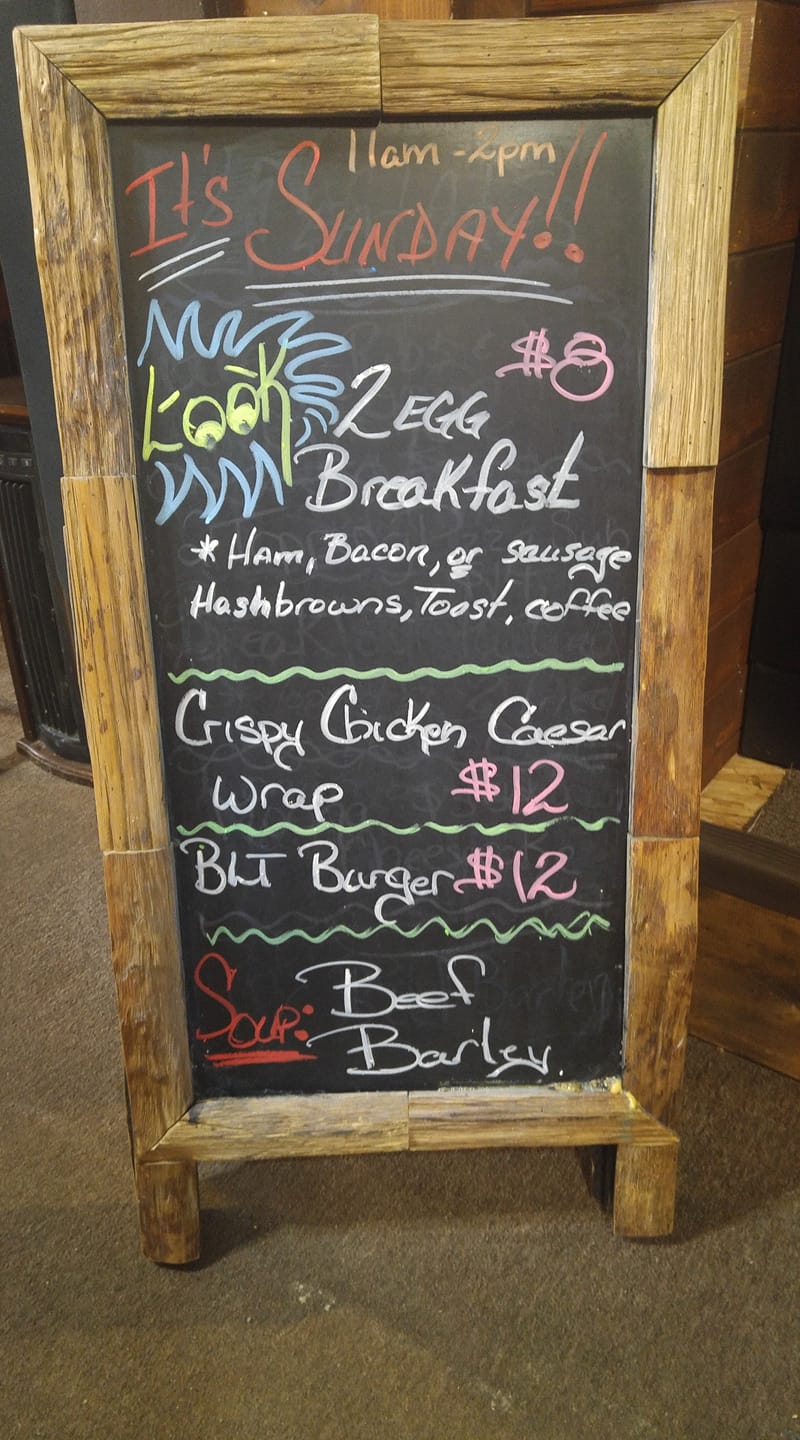 11am - 2pm
It's SUNDAY!!
LOOK
$8
2 EGG
Breakfast
* Ham, Bacon, or sausage
Hashbrowns, Toast, coffee
Crispy Chicken Caesar
Wrap $12
BLT Burger $12
Soup: Beef
Barley.